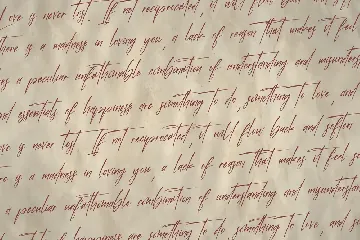 ove is never lost. If not reciprocated, it will flow back
there is a madness in loving you, a lack of reason that makes it feel
is a peculiar unfathomable combination of understanding and misunders
and essentials of happiness are something to do, something to love, and
ove is never lost. If not reciprocated, it will flow back and soften
re is a madness in loving you, a lack of reason that makes it feel
a peculiar unfathomable combination of understanding and misunderst
of happiness are something to do, something to love, and